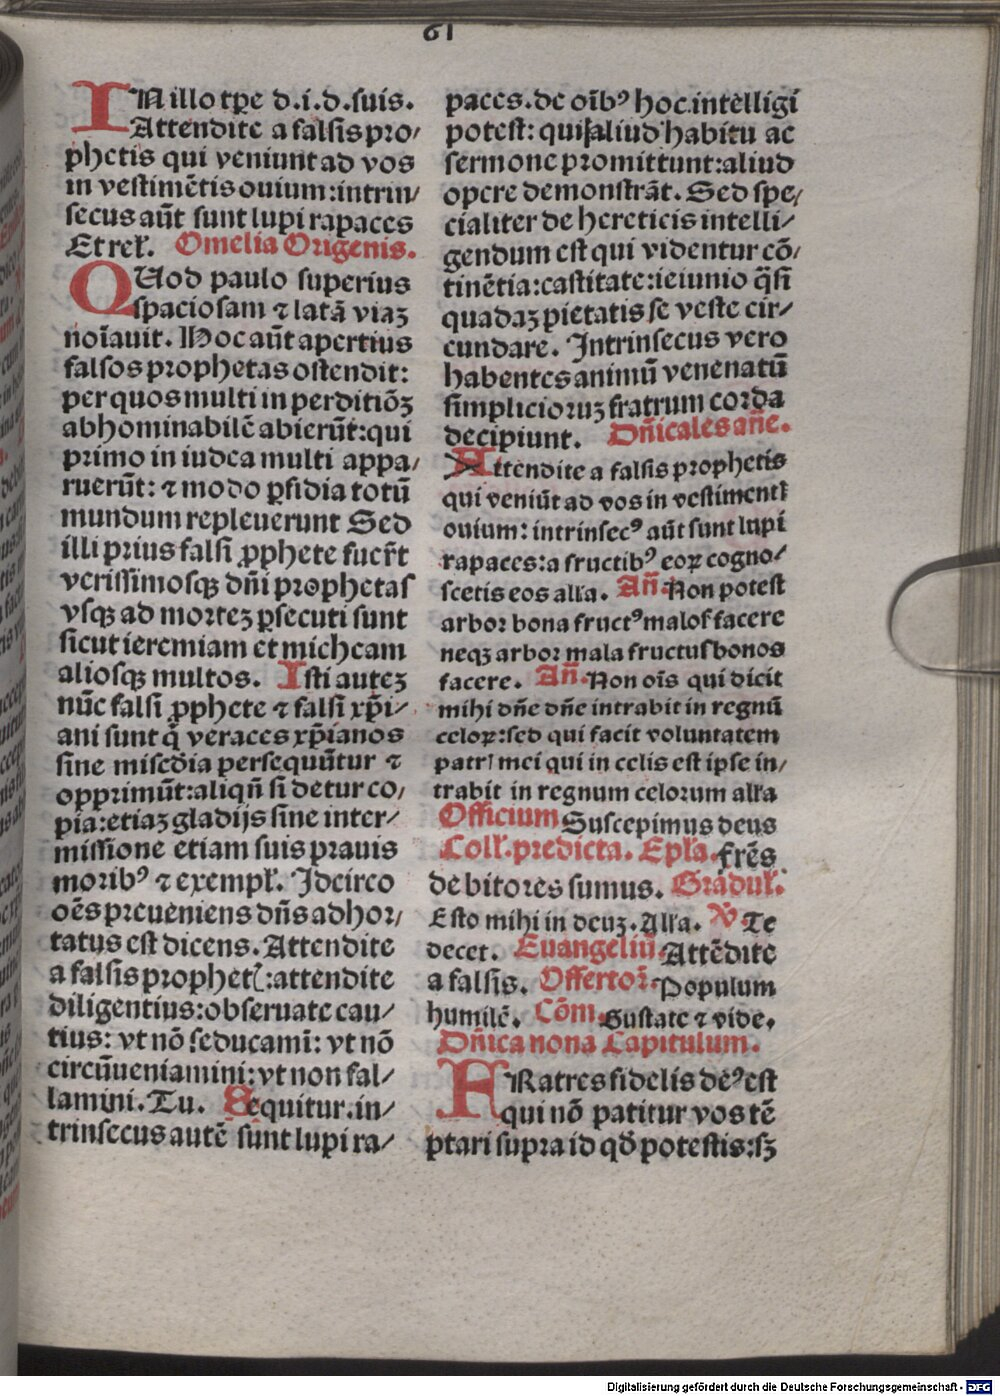 61
IN illo tp̄e d.i.d.suis.
Attendite a falsis pro⸗
phetis qui veniunt ad vos
in vestimētis ouium:intrin⸗
secus aūt sunt lupi rapaces
Et reł. Omelia Origenis.
QUod paulo superius
spaciosam ⁊ latā viaȝ
noīauit. Hoc aūt apertius
falsos prophetas ostendit:
per quos multi in perditiōȝ
abhominabilē abierūt:qui
primo in iudea multi appa⸗
ruerūt: ⁊ modo ꝑfidia totū
mundum repleuerunt Sed
illi prius falsi ꝓphete fuer̄t
verissimosqȝ dn̄i prophetas
vsqȝ ad morteȝ ꝑsecuti sunt
sicut ieremiam et micheam
aliosqȝ multos. Isti auteȝ
nūc falsi ꝓphete ⁊ falsi xp̄i⸗
ani sunt q̄ veraces xp̄ianos
sine misc̄dia persequūtur ⁊
opprimūt:aliqn̄ si detur co⸗
pia:etiaȝ gladijs sine inter⸗
missione etiam suis prauis
moribꝰ ⁊ exempł. Idcirco
oēs preueniens dn̄s adhor⸗
tatus est dicens. Attendite
a falsis prophetꝭ:attendite
diligentius:obseruate cau⸗
tius: vt nō seducami: vt nō
circūueniamini:vt non fal⸗
lamini. Tu. Sequitur.in⸗
trinsecus autē sunt lupi ra⸗
paces.de oībꝰ hoc intelligi
potest: qui aliud habitu ac
sermone promittunt:aliud
opere demonstrāt. Sed spe⸗
cialiter de hereticis intelli⸗
gendum est qui videntur cō⸗
tinētia:castitate:ieiunio q̄si
quadaȝ pietatis se veste cir⸗
cundare. Intrinsecus vero
habentes animū venenatū
simplicioruȝ fratrum corda
decipiunt. Dn̄icales an̄e.
Attendite a falsis prophetis
qui veniūt ad vos in vestimentꝭ
ouium: intrinsecꝰ aūt sunt lupi
rapaces:a fructibꝰ eoꝝ cogno⸗
scetis eos alła. An̄. Non potest
arbor bona fructꝰ malos facere
neqȝ arbor mala fructus bonos
facere. An̄. Non oīs qui dicit
mihi dn̄e dn̄e intrabit in regnū
celoꝝ:sed qui facit voluntatem
patrꝭ mei qui in celis est ipse in⸗
trabit in regnum celorum alła
Officium Suscepimus deus
Coll̄.predicta. Epła. fr̄es
debitores sumus. Graduł.
Esto mihi in deuȝ. Alła. V̄. Te
decet. Euangeliū. Attēdite
a falsis. Offertoꝝ. Populum
humilē. Cōm. Gustate ⁊ vide.
Dn̄ica nona Capitulum.
FRatres fidelis deꝰ est
qui nō patitur vos tē
ptari supra id qḋ potestis:sȝ
Digitalisierung gefördert durch die Deutsche Forschungsgemeinschaft - DFG